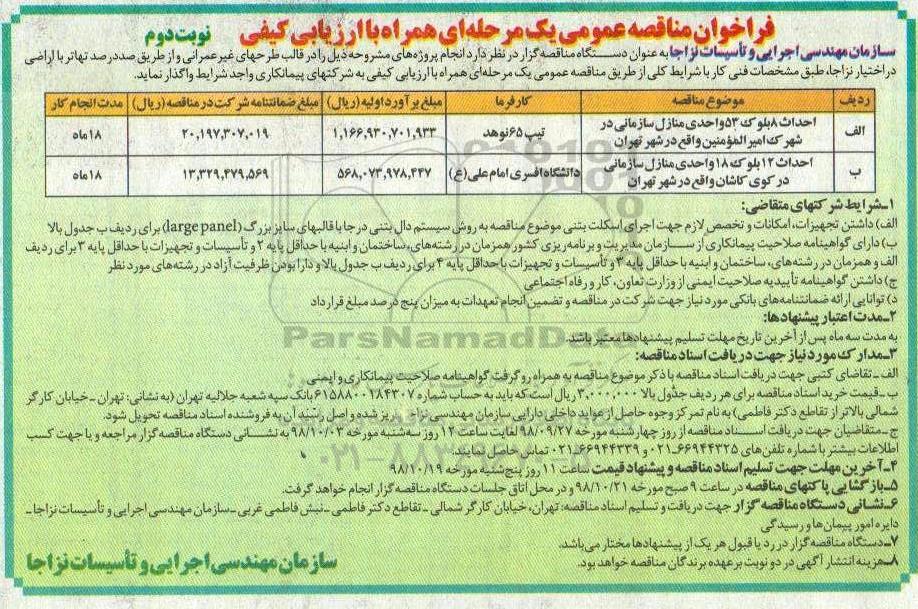 فراخوان مناقصه عمومی یک مرحله‌ای همراه با ارزیابی کیفی
نوبت دوم
سازمان مهندسی اجرایی و تأسیسات نزاجا به عنوان دستگاه مناقصه گزار در نظر دارد انجام پروژه‌های مشروحه ذیل را در قالب طرحهای غیر عمرانی و از طریق صددرصد تهاتر با اراضی
در اختیار نزاجا، طبق مشخصات فنی کار با شرایط کلی از طریق مناقصه عمومی یک مرحله‌ای همراه با ارزیابی کیفی به شرکتهای پیمانکاری واجد شرایط واگذار نماید.
ردیف موضوع مناقصه کارفرما مبلغ برآورد اولیه (ریال) مبلغ ضمانتنامه شرکت در مناقصه (ریال) مدت انجام کار
الف احداث ۸ بلوک ۵۳ واحدی منازل سازمانی در شهرک امیرالمؤمنین واقع در شهر تهران تیپ ۶۵ نوهد ۱,۱۶۶,۹۳۰,۷۰۱,۹۳۳ ۲۰,۱۹۷,۳۰۷,۰۱۹ ۱۸ ماه
ب احداث ۱۲ بلوک ۱۸ واحدی منازل سازمانی در کوی کاشان واقع در شهر تهران دانشگاه افسری امام علی (ع) ۵۶۸,۰۷۳,۹۷۸,۴۴۷ ۱۳,۳۲۹,۴۷۹,۵۶۹ ۱۸ ماه
۱ـ شرایط شرکتهای متقاضی:
الف) داشتن تجهیزات، امکانات و تخصص لازم جهت اجرای اسکلت بتنی موضوع مناقصه به روش سیستم دال بتنی درجا با قالبهای سایز بزرگ (large panel) برای ردیف ب جدول بالا
ب) دارای گواهینامه صلاحیت پیمانکاری از سازمان مدیریت و برنامه‌ریزی کشور همزمان در رشته‌های، ساختمان و ابنیه با حداقل پایه ۲ و تأسیسات و تجهیزات با حداقل پایه ۳ برای ردیف
الف و همزمان در رشته‌های، ساختمان و ابنیه با حداقل پایه ۳ و تأسیسات و تجهیزات با حداقل پایه ۴ برای ردیف ب جدول بالا و دارا بودن ظرفیت آزاد در رشته‌های مورد نظر
ج) داشتن گواهینامه تأییدیه صلاحیت ایمنی از وزارت تعاون، کار و رفاه اجتماعی
د) توانایی ارائه ضمانتنامه‌های بانکی مورد نیاز جهت شرکت در مناقصه و تضمین انجام تعهدات به میزان پنج درصد مبلغ قرارداد
۲ـ مدت اعتبار پیشنهادها:
به مدت سه ماه پس از آخرین تاریخ مهلت تسلیم پیشنهادها معتبر باشد.
۳ـ مدارک مورد نیاز جهت دریافت اسناد مناقصه:
الف ـ تقاضای کتبی جهت دریافت اسناد مناقصه با ذکر موضوع مناقصه به همراه رو گرفت گواهینامه صلاحیت پیمانکاری و ایمنی
ب ـ قیمت خرید اسناد مناقصه برای هر ردیف جدول بالا ۳,۰۰۰,۰۰۰ ریال است که باید به حساب شماره ۶۱۵۸۸۰۰۱۸۴۳۰۷ بانک سپه شعبه جلالیه تهران (به نشانی: تهران ـ خیابان کارگر
شمالی بالاتر از تقاطع دکتر فاطمی) به نام تمرکز وجوه حاصل از عواید داخلی دارایی سازمان مهندسی نزاجا واریز شده و اصل رسید آن به فروشنده اسناد مناقصه تحویل شود.
ج ـ متقاضیان جهت دریافت اسناد مناقصه از روز چهارشنبه مورخه ۹۸/۰۹/۲۷ لغایت ساعت ۱۲ روز سه‌شنبه مورخه ۹۸/۱۰/۰۳ به نشانی دستگاه مناقصه گزار مراجعه و یا جهت کسب
اطلاعات بیشتر با شماره تلفن‌های ۶۶۹۴۴۳۲۵-۰۲۱ و ۶۶۹۴۴۳۳۹-۰۲۱ تماس حاصل نمایند.
۴ـ آخرین مهلت جهت تسلیم اسناد مناقصه و پیشنهاد قیمت ساعت ۱۱ روز پنج‌شنبه مورخه ۹۸/۱۰/۱۹
۵ـ بازگشایی پاکتهای مناقصه در ساعت ۹ صبح مورخه ۹۸/۱۰/۲۱ و در محل اتاق جلسات دستگاه مناقصه گزار انجام خواهد گرفت.
۶ـ نشانی دستگاه مناقصه گزار جهت دریافت و تسلیم اسناد مناقصه: تهران، خیابان کارگر شمالی ـ تقاطع دکتر فاطمی ـ نبش فاطمی غربی ـ سازمان مهندسی اجرایی و تأسیسات نزاجا ـ
دایره امور پیمان‌ها و رسیدگی
۷ـ دستگاه مناقصه گزار در رد یا قبول هر یک از پیشنهادها مختار می‌باشد.
۸ـ هزینه انتشار آگهی در دو نوبت بر عهده برندگان مناقصه خواهد بود.
سازمان مهندسی اجرایی و تأسیسات نزاجا
ParsNamadData